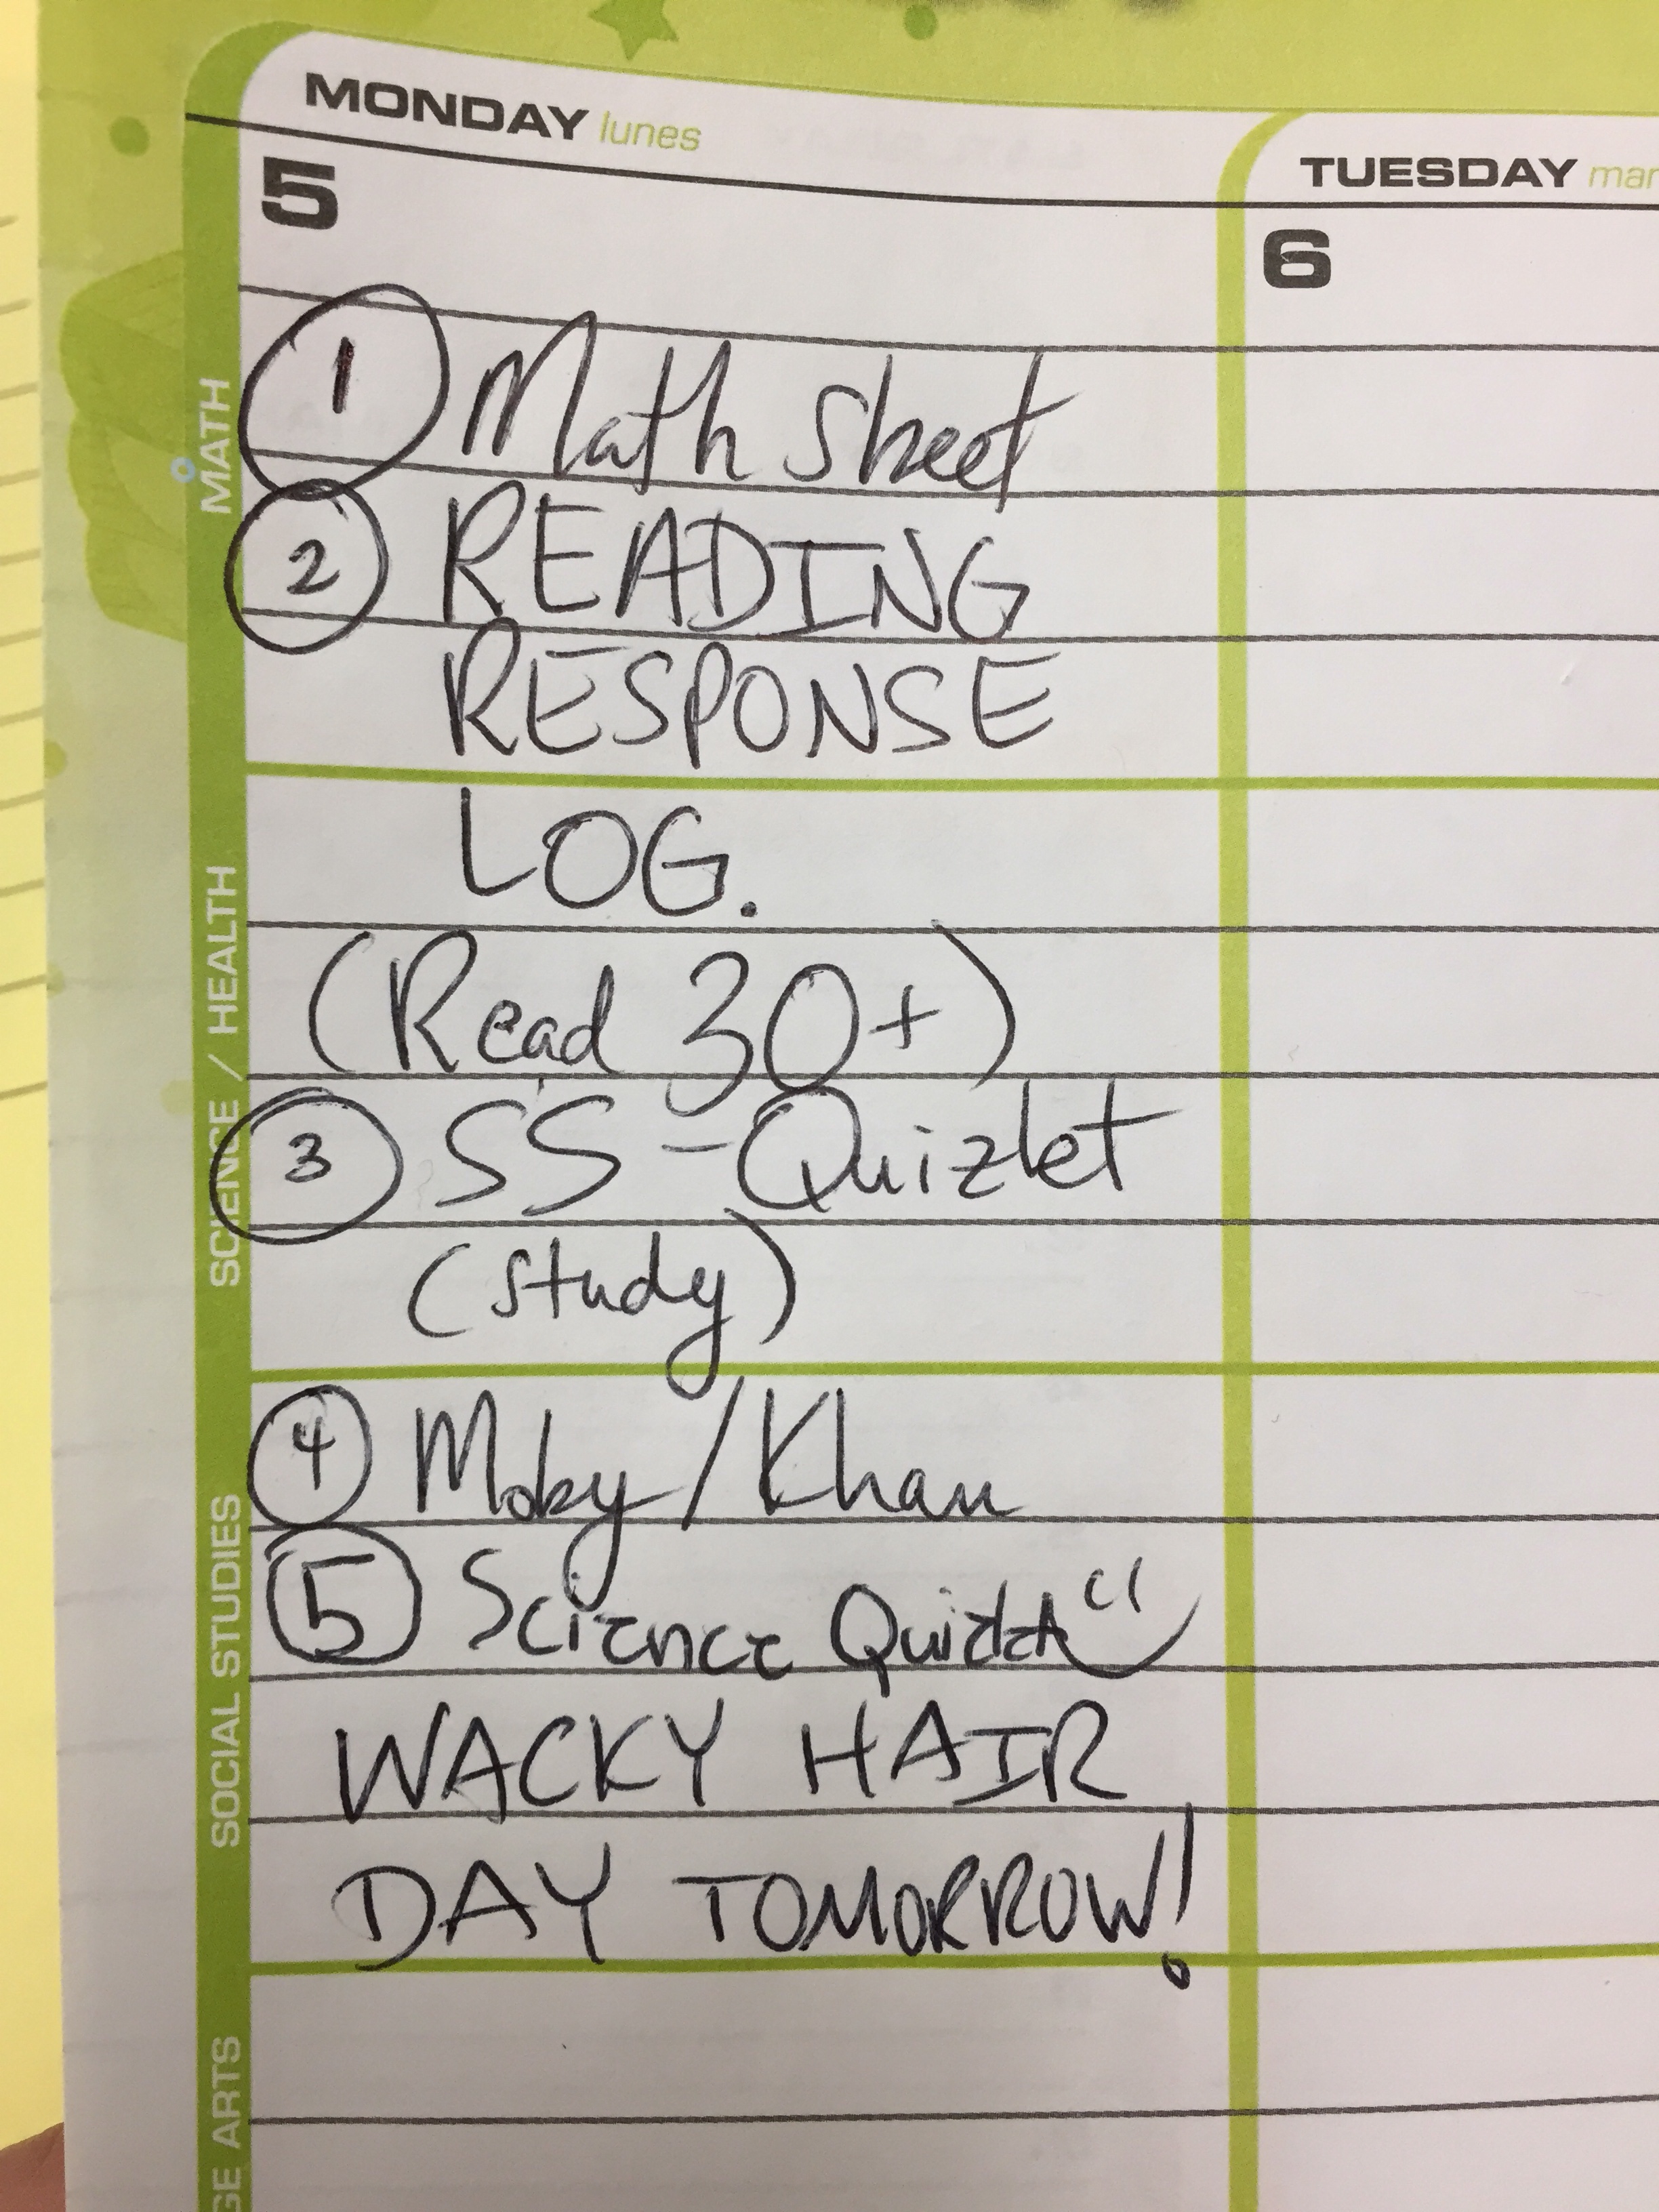 MONDAY lunes
TUESDAY mar
5
6
MATH
1 Math Sheet
2 READING
RESPONSE
LOG.
SCIENCE / HEALTH
(Read 30+)
3 SS - Quizlet
(study)
SOCIAL STUDIES
4 Moby/Khan
5 Science Quizlet
WACKY HAIR
DAY TOMORROW!
GE ARTS